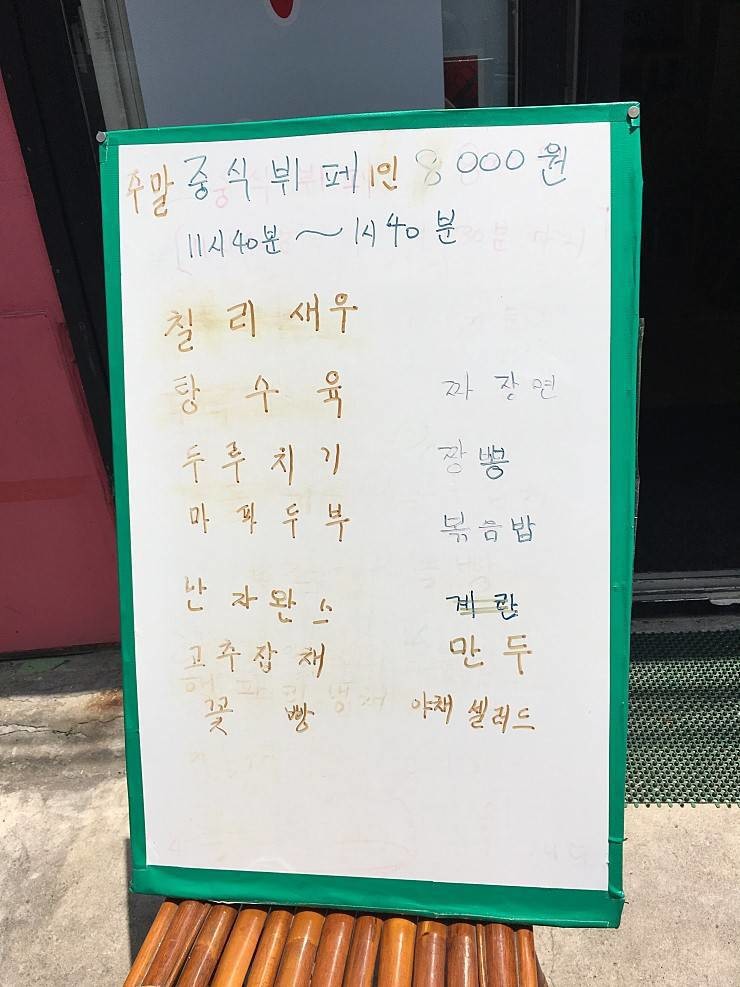 주말 중식뷔페 1인 8000원
11시40분 ~ 1시40분
칠리새우
탕수육 짜장면
두루치기 짬뽕
마파두부 볶음밥
난자완스 계란
고추잡채 만두
꽃빵 야채 셀러드